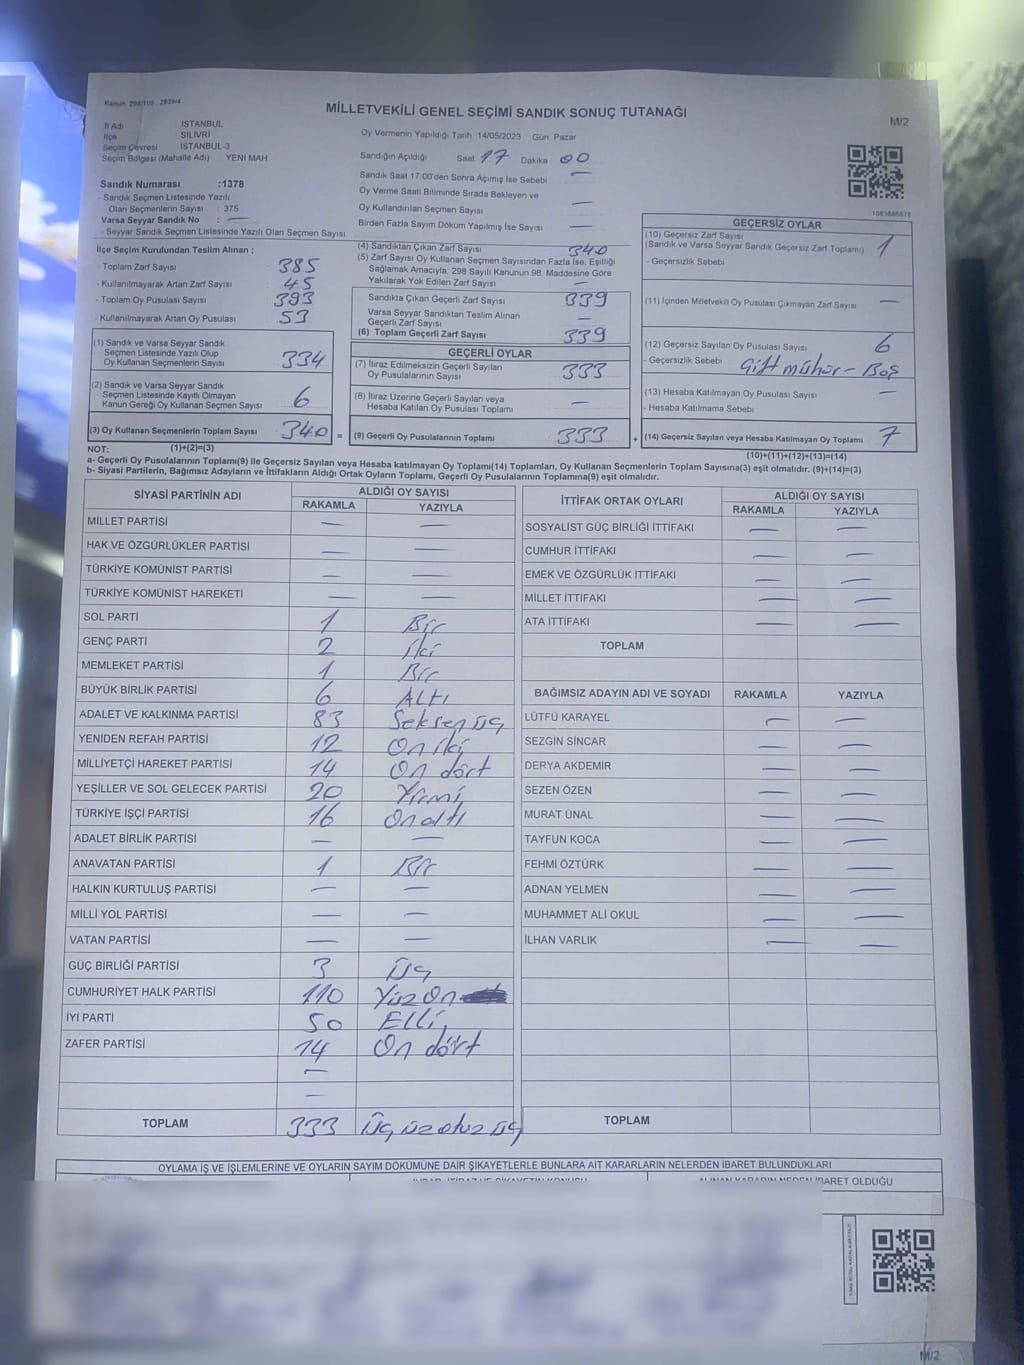 Kanun: 298/105 , 2839/4
MİLLETVEKİLİ GENEL SEÇİMİ SANDIK SONUÇ TUTANAĞI
M/2
İl Adı İSTANBUL
İlçe SİLİVRİ
Seçim Çevresi İSTANBUL-3
Seçim Bölgesi (Mahalle Adı) YENİ MAH
Oy Vermenin Yapıldığı Tarih: 14/05/2023 Gün: Pazar
Sandığın Açıldığı Saat: 17 Dakika: 00
Sandık Saat 17:00'den Sonra Açımış İse Sebebi —
Oy Verme Saati Bitiminde Sırada Bekleyen ve
Oy Kullandırılan Seçmen Sayısı —
Birden Fazla Sayım Döküm Yapılmış İse Sayısı —
Sandık Numarası :1378
- Sandık Seçmen Listesinde Yazılı
Olan Seçmenlerin Sayısı : 375
Varsa Seyyar Sandık No : —
- Seyyar Sandık Seçmen Listesinde Yazılı Olan Seçmen Sayısı:
1083686878
İlçe Seçim Kurulundan Teslim Alınan ;
- Toplam Zarf Sayısı 385
- Kullanılmayarak Artan Zarf Sayısı 45
- Toplam Oy Pusulası Sayısı 393
- Kullanılmayarak Artan Oy Pusulası 53
(1) Sandık ve Varsa Seyyar Sandık
Seçmen Listesinde Yazılı Olup
Oy Kullanan Seçmenlerin Sayısı 334
(2) Sandık ve Varsa Seyyar Sandık
Seçmen Listesinde Kayıtlı Olmayan
Kanun Gereği Oy Kullanan Seçmen Sayısı 6
(3) Oy Kullanan Seçmenlerin Toplam Sayısı 340 =
(4) Sandıktan Çıkan Zarf Sayısı 340
(5) Zarf Sayısı Oy Kullanan Seçmen Sayısından Fazla İse, Eşitliği
Sağlamak Amacıyla, 298 Sayılı Kanunun 98. Maddesine Göre
Yakılarak Yok Edilen Zarf Sayısı —
Sandıkta Çıkan Geçerli Zarf Sayısı 339
Varsa Seyyar Sandıktan Teslim Alınan
Geçerli Zarf Sayısı —
(6) Toplam Geçerli Zarf Sayısı 339
GEÇERLİ OYLAR
(7) İtiraz Edilmeksizin Geçerli Sayılan
Oy Pusulalarının Sayısı 333
(8) İtiraz Üzerine Geçerli Sayılan veya
Hesaba Katılan Oy Pusulası Toplamı —
(9) Geçerli Oy Pusulalarının Toplamı 333 +
GEÇERSİZ OYLAR
(10) Geçersiz Zarf Sayısı
(Sandık ve Varsa Seyyar Sandık Geçersiz Zarf Toplamı) 1
- Geçersizlik Sebebi
(11) İçinden Milletvekili Oy Pusulası Çıkmayan Zarf Sayısı —
(12) Geçersiz Sayılan Oy Pusulası Sayısı 6
- Geçersizlik Sebebi Çift mühür - Boş
(13) Hesaba Katılmayan Oy Pusulası Sayısı —
- Hesaba Katılmama Sebebi
(14) Geçersiz Sayılan veya Hesaba Katılmayan Oy Toplamı 7
NOT: (1)+(2)=(3) (10)+(11)+(12)+(13)=(14)
a- Geçerli Oy Pusulasının Toplamı(9) ile Geçersiz Sayılan veya Hesaba katılmayan Oy Toplamı(14) Toplamları, Oy Kullanan Seçmenlerin Toplam Sayısına(3) eşit olmalıdır. (9)+(14)=(3)
b- Siyasi Partilerin, Bağımsız Adayların ve İttifakların Aldığı Ortak Oyların Toplamı, Geçerli Oy Pusulalarının Toplamına(9) eşit olmalıdır.
SİYASİ PARTİNİN ADI ALDIĞI OY SAYISI
RAKAMLA YAZIYLA
MİLLET PARTİSİ — —
HAK VE ÖZGÜRLÜKLER PARTİSİ — —
TÜRKİYE KOMÜNİST PARTİSİ — —
TÜRKİYE KOMÜNİST HAREKETİ — —
SOL PARTİ 1 Bir
GENÇ PARTİ 2 İki
MEMLEKET PARTİSİ 1 Bir
BÜYÜK BİRLİK PARTİSİ 6 Altı
ADALET VE KALKINMA PARTİSİ 83 Seksen üç
YENİDEN REFAH PARTİSİ 12 On iki
MİLLİYETÇİ HAREKET PARTİSİ 14 On dört
YEŞİLLER VE SOL GELECEK PARTİSİ 20 Yirmi
TÜRKİYE İŞÇİ PARTİSİ 16 On altı
ADALET BİRLİK PARTİSİ — —
ANAVATAN PARTİSİ 1 Bir
HALKIN KURTULUŞ PARTİSİ — —
MİLLİ YOL PARTİSİ — —
VATAN PARTİSİ — —
GÜÇ BİRLİĞİ PARTİSİ 3 Üç
CUMHURİYET HALK PARTİSİ 110 Yüz On
İYİ PARTİ 50 Elli
ZAFER PARTİSİ 14 On dört
—
—
TOPLAM 333 Üçyüzotuz üç
İTTİFAK ORTAK OYLARI ALDIĞI OY SAYISI
RAKAMLA YAZIYLA
SOSYALİST GÜÇ BİRLİĞİ İTTİFAKI — —
CUMHUR İTTİFAKI — —
EMEK VE ÖZGÜRLÜK İTTİFAKI — —
MİLLET İTTİFAKI — —
ATA İTTİFAKI — —
TOPLAM
BAĞIMSIZ ADAYIN ADI VE SOYADI RAKAMLA YAZIYLA
LÜTFÜ KARAYEL — —
SEZGİN SİNCAR — —
DERYA AKDEMİR — —
SEZEN ÖZEN — —
MURAT ÜNAL — —
TAYFUN KOCA — —
FEHMİ ÖZTÜRK — —
ADNAN YELMEN — —
MUHAMMET ALİ OKUL — —
İLHAN VARLIK — —
TOPLAM
OYLAMA İŞ VE İŞLEMLERİNE VE OYLARIN SAYIM DÖKÜMÜNE DAİR ŞİKAYETLERLE BUNLARA AİT KARARLARIN NELERDEN İBARET BULUNDUKLARI
ALINAN KARARIN NEDEN İBARET OLDUĞU
M/2